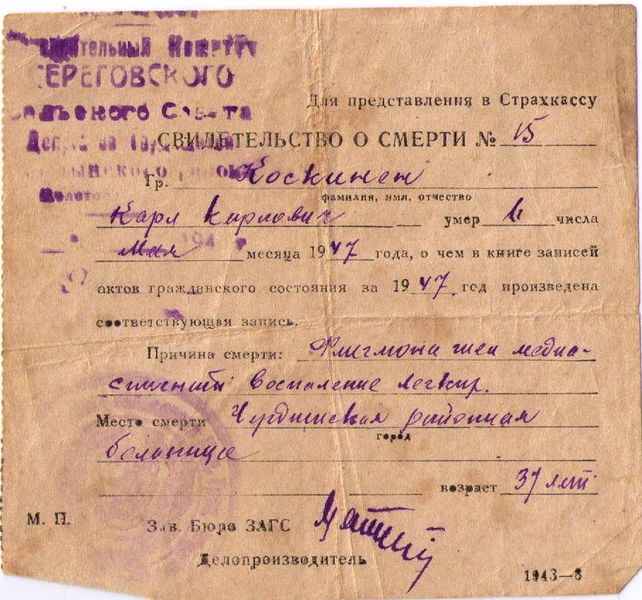 СЕРЕГОВСКОГО
Для представления в Страхкассу
СВИДЕТЕЛЬСТВО О СМЕРТИ № 15
Гр. Коскинен
фамилия, имя, отчество
Карл Карлович умер 11 числа
Мая месяца 1947 года, о чем в книге записей
актов гражданского состояния за 1947 год произведена
соответствующая запись.
Причина смерти: Флегмона шеи медиа-
воспаление легких.
Место смерти Чердынская районная
город
больница
возраст 37 лет
М. П. Зав. Бюро ЗАГС
Делопроизводитель
1943—8